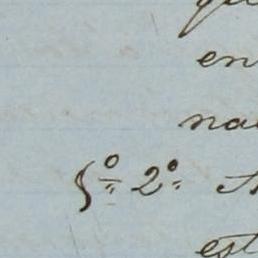 en
na
§º 2º A
est